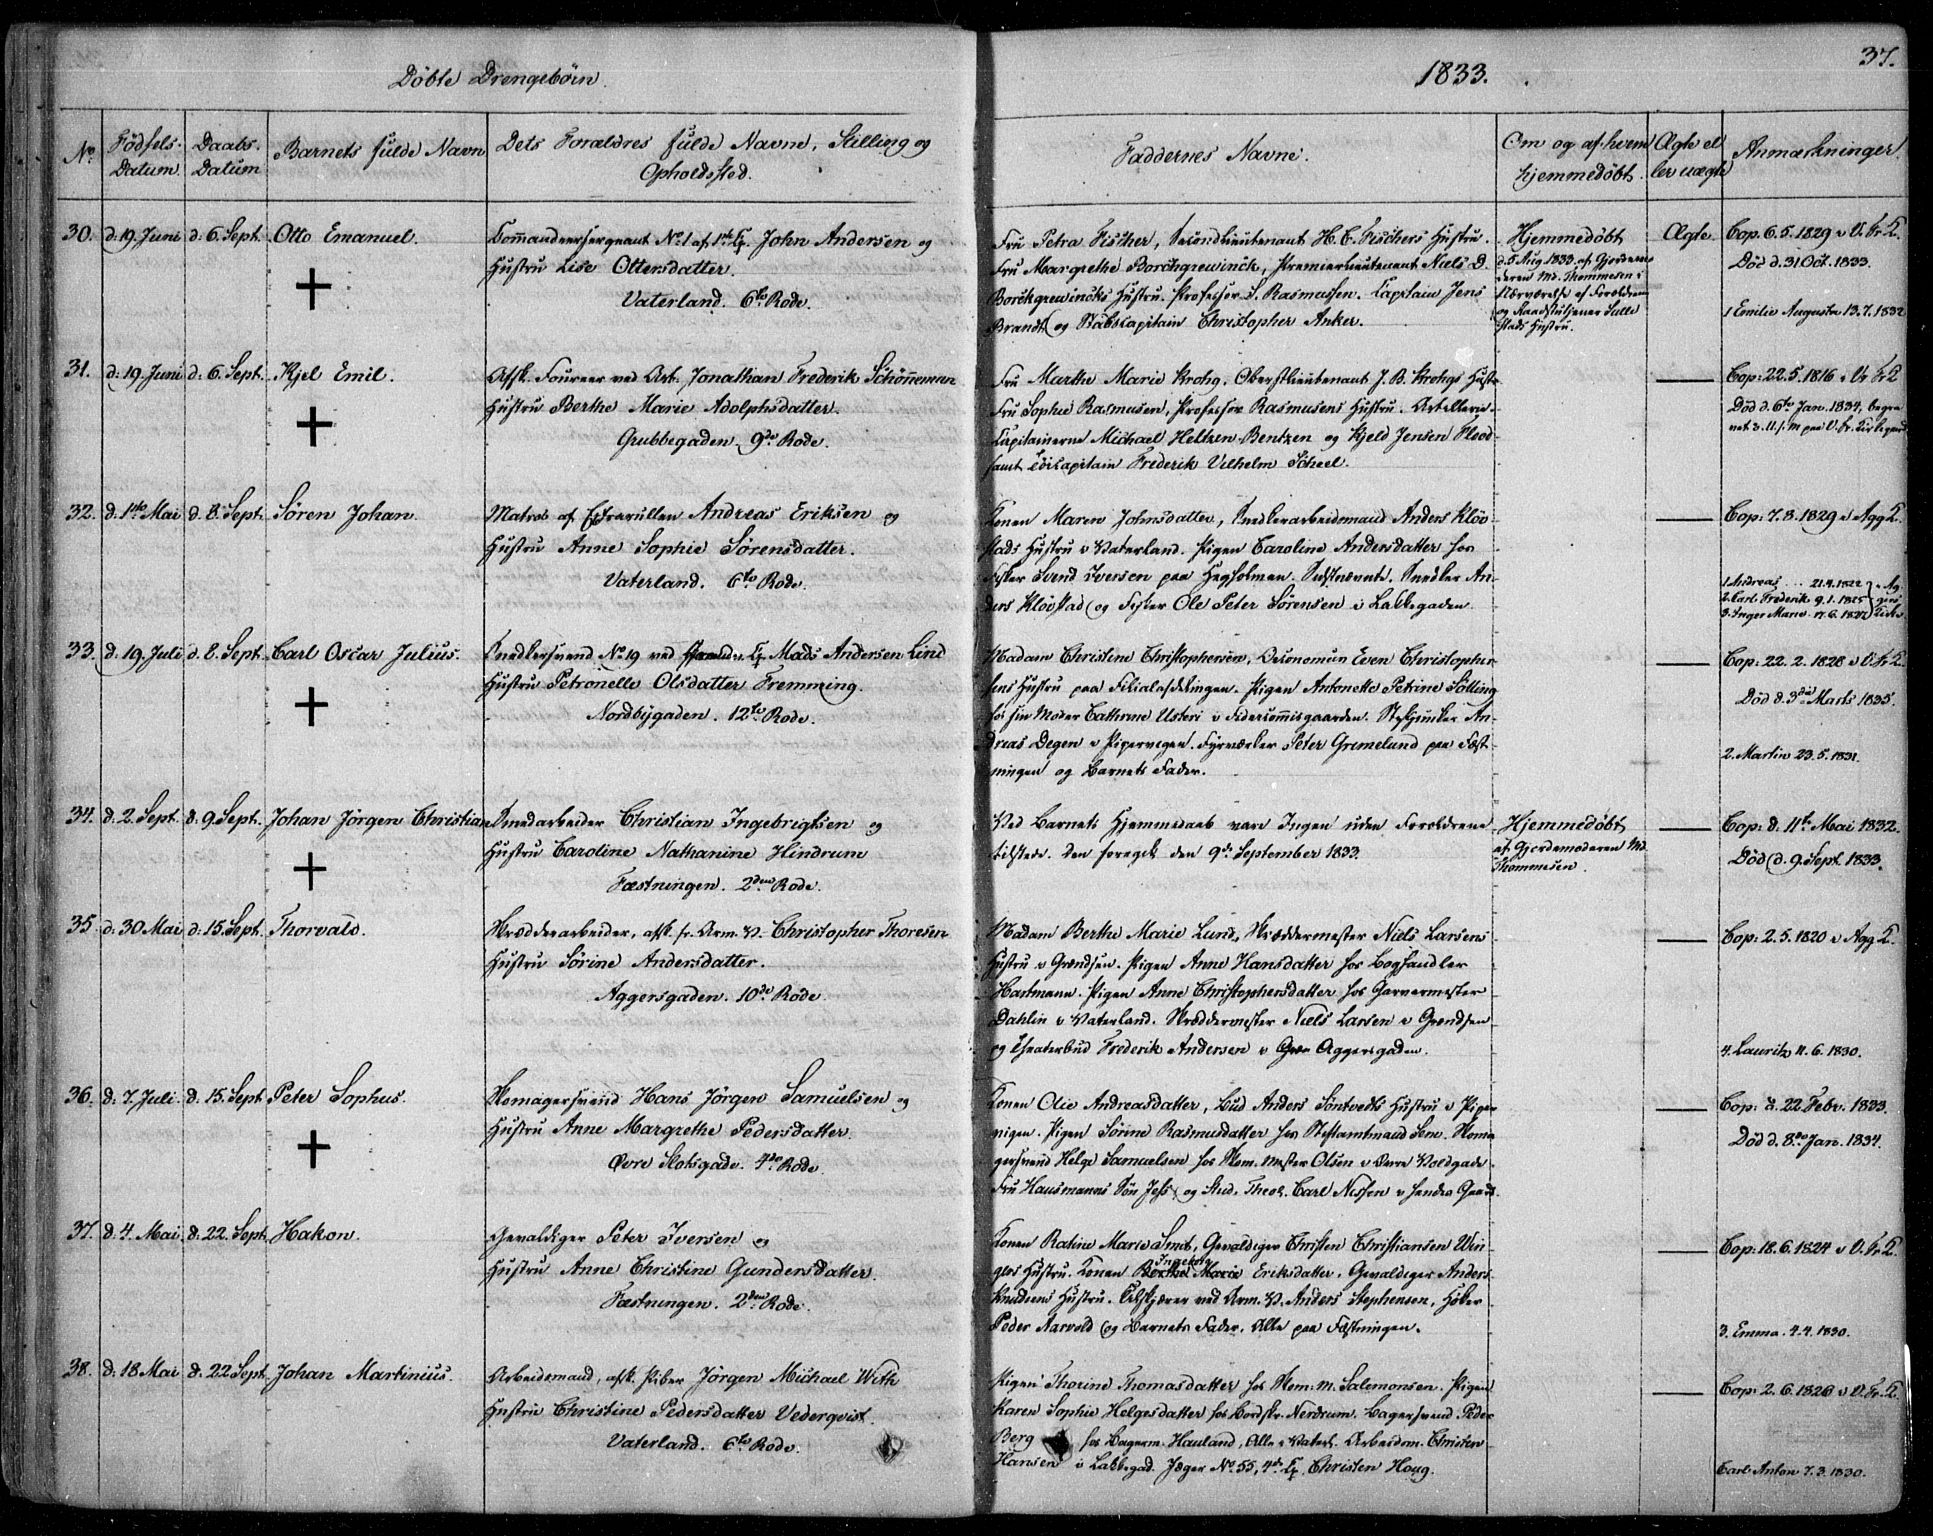 37.
Döbte Drengebörn.
1833.
No. Födsels-Datum. Daabs-Datum Barnets fulde Navn Dets Forældres fulde Navne, Stilling og Opholdssted.
Faddernes Navne. Om og af hvem hjemmedöbt. Ægte eller uægte Anmærkninger.
30. d. 19. Juni d. 6. Sept. Otto Emanuel.
Commandeersergeant No. 1 af 1ste Cp. John Andersen og
Hustru Lise Ottersdatter.
Vaterland. 6te Rode.
Fru Petra Fischer, Secondlieutenant H. C. Fischers Hustru.
Fru Margrethe Borchgrewinck, Premierlieutenant Niels D.
Borchgrewincks Hustru. Professor S. Rasmussen. Capitain Jens
Brandt og Stabscapitain Christopher Anker.
Hjemmedöbt
d. 5 Aug. 1833 af Gjordemo
deren Md. Thommesen i
Nærværelse af Forældrene
og Raadstutjener Sulle
stads Hustru.
Ægte
Cop. 6. 5. 1829 i V. Fr. K.
Död d. 31 Oct. 1833.
1 Emilie Augusta 13. 7. 1832
31. d. 19. Juni d. 6. Sept. Kjel Emil.
Afsk. Foureer ved Art. Jonathan Frederik Schönnemann
Hustru Berthe Marie Adolphsdatter.
Grubbegaden. 9de Rode.
Fru Marthe Marie Krohg, Oberstlieutenant J. B. Krohgs Hustr.
Fru Sophie Rasmusen, Professor Rasmusens Hustru. Artellerie-
Capitainerne Michael Heltzen Bentzen og Kjeld Jensen Flood
samt Söecapitain Frederik Vilhelm Scheel.
Cop: 22. 5. 1816 i Vr Fr K
Död d. 6te Jan. 1834, begra
vet paa V. Fr. Kirkegaard
32. d. 1ste Mai d. 8. Sept. Sören Johan.
Matros af Extrarullen Andreas Eriksen og
Hustru Anne Sophie Sörensdatter.
Vaterland. 6te Rode.
Konen Maren Johnsdatter, Snedkerarbeidsmand Anders Klöv-
stads Hustru i Vaterland. Pigen Caroline Andersdatter hos
Fisker Svend Iversen paa Hegholmen. Snedker An-
ders Klövstad og Fisker Ole Peter Sörensen i Lakkegaden.
Cop: 7. 8. 1829 i Agg K.
1. Andreas 21. 4. 1822
2. Carl Frederik 9. 1. 1825
3. Inger Marie 17. 6. 1827
33. d. 19. Juli d. 8. Sept. Carl Oscar Julius.
Snedkersvend No. 19 ved Cp. Mads Andersen Lind
Hustru Petronelle Olsdatter Fremming.
Nordbygaden. 12te Rode.
Madam Christine Christophersen, Oeconomun Even Christopher
sens Hustru paa Filialafdelingen. Pigen Antonette Petrine Sölling
hos sin Moder Cathrine Usteri i Fideicommisgaarden. Stykjunker An-
dreas Degen i Pipervigen. Fyrværker Peter Grimelund paa Fæst-
ningen og Barnets Fader.
Cop: 22. 2. 1828 i V. Fr K.
Död d. 3die Marts 1835.
2. Martin 23. 5. 1831.
34. d. 2. Sept. d. 9. Sept. Johan Jörgen Christian
Smedarbeider Christian Ingebrigtsen og
Hustru Caroline Nathanine Hindrum
Fæstningen. 2den Rode.
Ved Barnets Hjemmedaab vare Ingen uden Forældrene
tilstede. Den foregik den 9de September 1833.
Hjemmedöbt
af Gjordemoderen Md.
Thommesen.
Cop: d. 11te Mai 1832.
Död d. 9. Sept. 1833.
35. d. 30 Mai d. 15. Sept. Thorvald.
Skrædderarbeider, afsk. fr. Arm. V. Christopher Thoresen
Hustru Sörine Andersdatter.
Aggersgaden. 10de Rode.
Madam Berthe Marie Lund, Skræddermester Niels Larsens
Hustru i Grændsen. Pigen Anne Hansdatter hos Boghandler
Hartmann. Pigen Anne Christophersdatter hos Garvermester
Dahlin i Vaterland. Skræddermester Niels Larsen i Grændsen
og Theaterbud Frederik Andersen i Aggersgaden.
Cop: 2. 5. 1820 i Agg K.
4. Lauritz 11. 6. 1830.
36. d. 7. Juli. d. 15. Sept. Peter Sophus.
Skomagersvend Hans Jörgen Samuelsen og
Hustru Anne Margrethe Pedersdatter.
Övre Slotsgade. 4de Rode.
Konen Olie Andreasdatter, Bud Anders Söntvedts Hustru i Piper
vigen. Pigen Sörine Rasmusdatter hos Stiftamtmand Sem. Skoma
gersvend Helge Samuelsen hos Skom. mester Olsen i Övre Voldgade.
Fru Hausmanns Sön Jess og Stud. Theol. Carl Nissen i hendes Gaard.
Cop: d. 22. Febr. 1833.
Död d. 8de Jan. 1834.
37. d. 4. Mai d. 22. Sept. Hakon.
Gevaldiger Peter Iversen og
Hustru Anne Christine Gundersdatter.
Fæstningen. 2den Rode.
Konen Ratine Marie Smit, Gevaldiger Christen Christiansen Win
gers Hustru. Konen Berthe Ingeborg Marie Eriksdatter. Gevaldiger Anders
Knudsens Hustru. Tilskjærer ved Arm. V. Anders Stephensen, Höker
Peder Aarvold og Barnets Fader. Alle paa Fæstningen.
Cop: 18. 6. 1824 i V. Fr K.
3. Emma. 4. 4. 1830.
38. d. 18 Mai d. 22 Sept. Johan Martinius.
Arbeidsmand, afsk. Piber Jörgen Michael With
Hustru Christine Pedersdatter Vederqvist.
Vaterland. 6te Rode.
Pigen Thorine Thomasdatter hos Skom: m. Salomonsen. Pigen
Karen Sophie Helgesdatter hos Bordskr. Nerdrum. Bagersvend Peder
Berg hos Bagerm. Hauland, Alle i Vaterl. Arbeidsm. Christen
Hansen i Lakkegad. Jæger No. 55, 4de Cp. Christen Houg.
Cop: 2. 6. 1826 i V. Fr. K.
Carl Anton 7. 3. 1830.